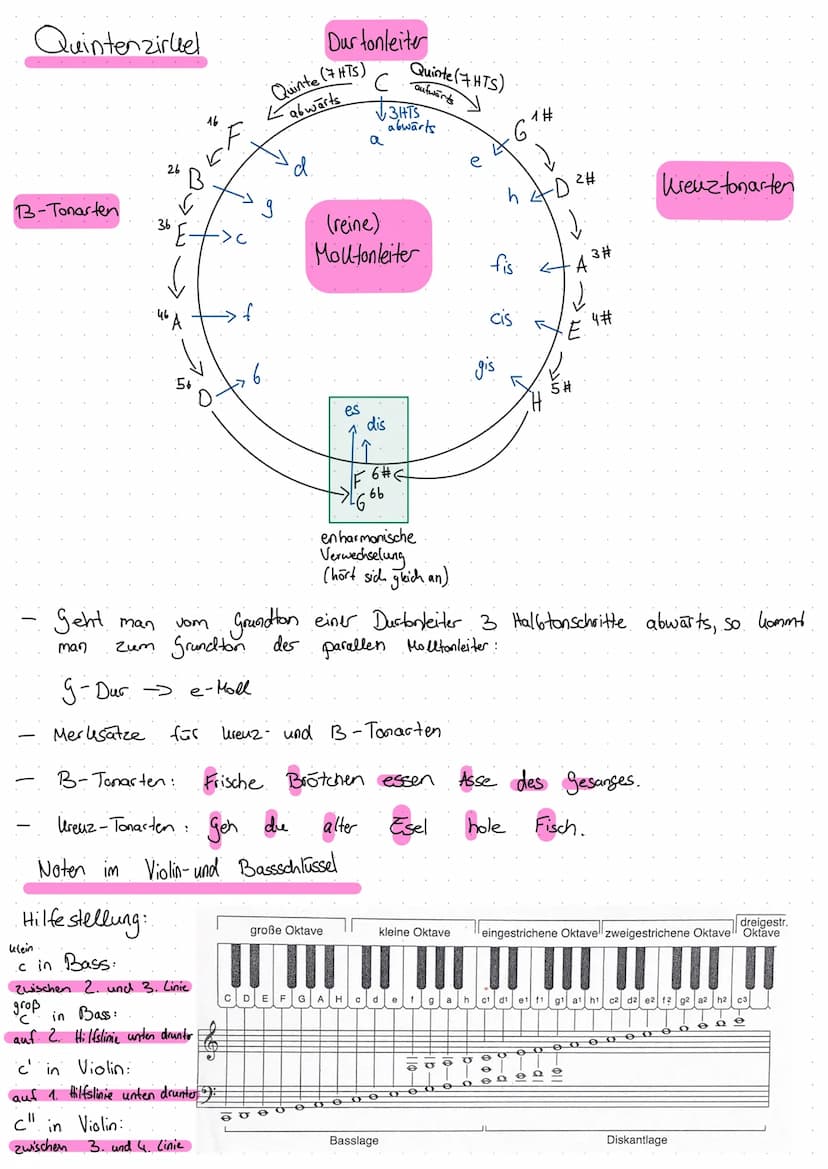 Quintenzirkel
Durtonleiter
Quinte (7 HTS)
abwärts
C
Quinte (7 HTS)
aufwärts
3HTS
abwärts
a
1b F
d
G 1#
e
2b B
g
D 2#
h
B-Tonarten
Kreuztonarten
3b E
c
(reine)
Molltonleiter
A 3#
fis
4b A
f
E 4#
cis
5b D
b
H 5#
gis
es
dis
F 6#
G 6b
enharmonische
Verwechselung
(hört sich gleich an)
- Geht man vom Grundton einer Durtonleiter 3 Halbtonschritte abwärts, so kommt
man zum Grundton der parallen Molltonleiter:
G-Dur → e-Moll
- Merksätze für Kreuz- und B-Tonarten
- B-Tonarten: Frische Brötchen essen Asse des Gesanges.
- Kreuz-Tonarten: Geh du alter Esel hole Fisch.
Noten im Violin- und Bassschlüssel
Hilfestellung:
klein
c in Bass:
zwischen 2. und 3. Linie
groß
C in Bass:
auf 2. Hilfslinie unten drunter
c' in Violin:
auf 1. Hilfslinie unten drunter
c'' in Violin:
zwischen 3. und 4. Linie
große Oktave
kleine Oktave
eingestrichene Oktave
zweigestrichene Oktave
dreigestr.
Oktave
C D E F G A H c d e f g a h c1 d1 e1 f1 g1 a1 h1 c2 d2 e2 f2 g2 a2 h2 c3
Basslage
Diskantlage